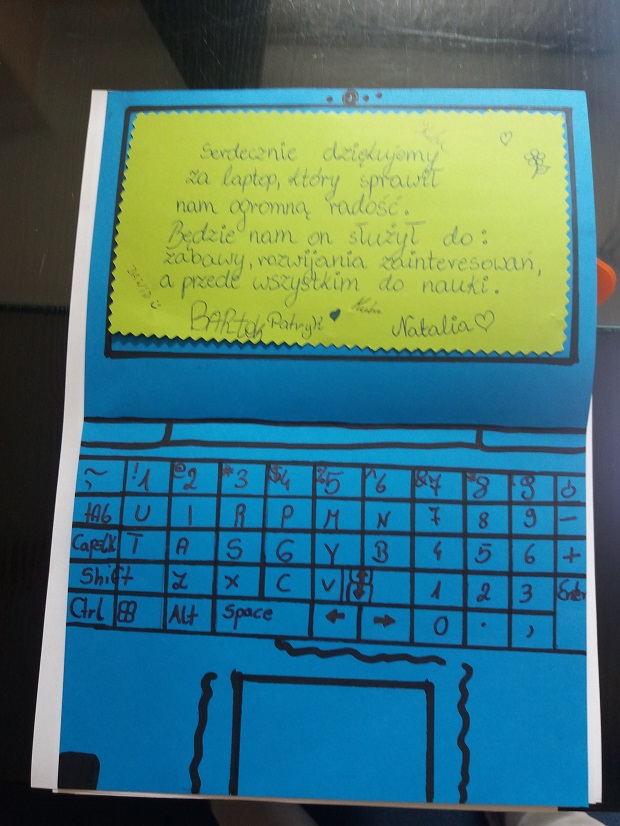 Serdecznie dziękujemy
za laptop, który sprawił
nam ogromną radość.
Będzie nam on służył do:
zabawy, rozwijania zainteresowań,
a przede wszystkim do nauki.
Bartek Patryk Natalia
~ !1 @2 #3 $4 %5 ^6 &7 *8 9
tAB U I R P M N 7 8 9 –
CapsLK T A S G Y B 4 5 6 +
Shift Z X C V 1 2 3 Enter
Ctrl Alt Space ← → 0 . ,